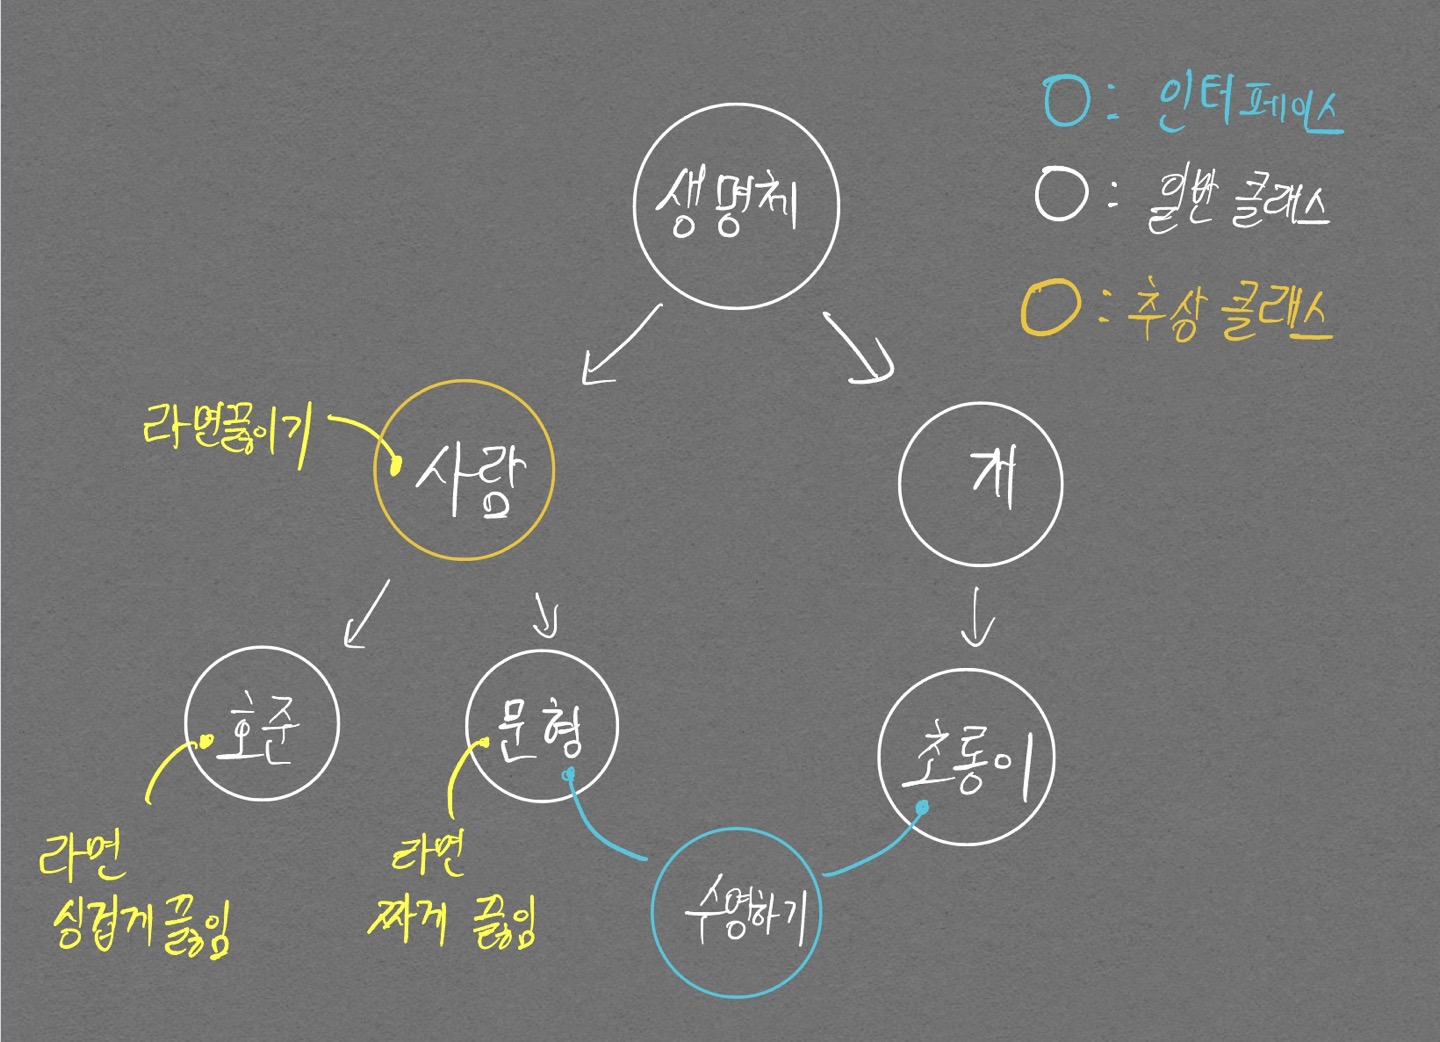 생명체
O : 인터페이스
O : 일반 클래스
O : 추상 클래스
라면끓이기
사람
개
호준
문형
초롱이
라면
싱겁게 끓임
라면
짜게 끓임
수영하기